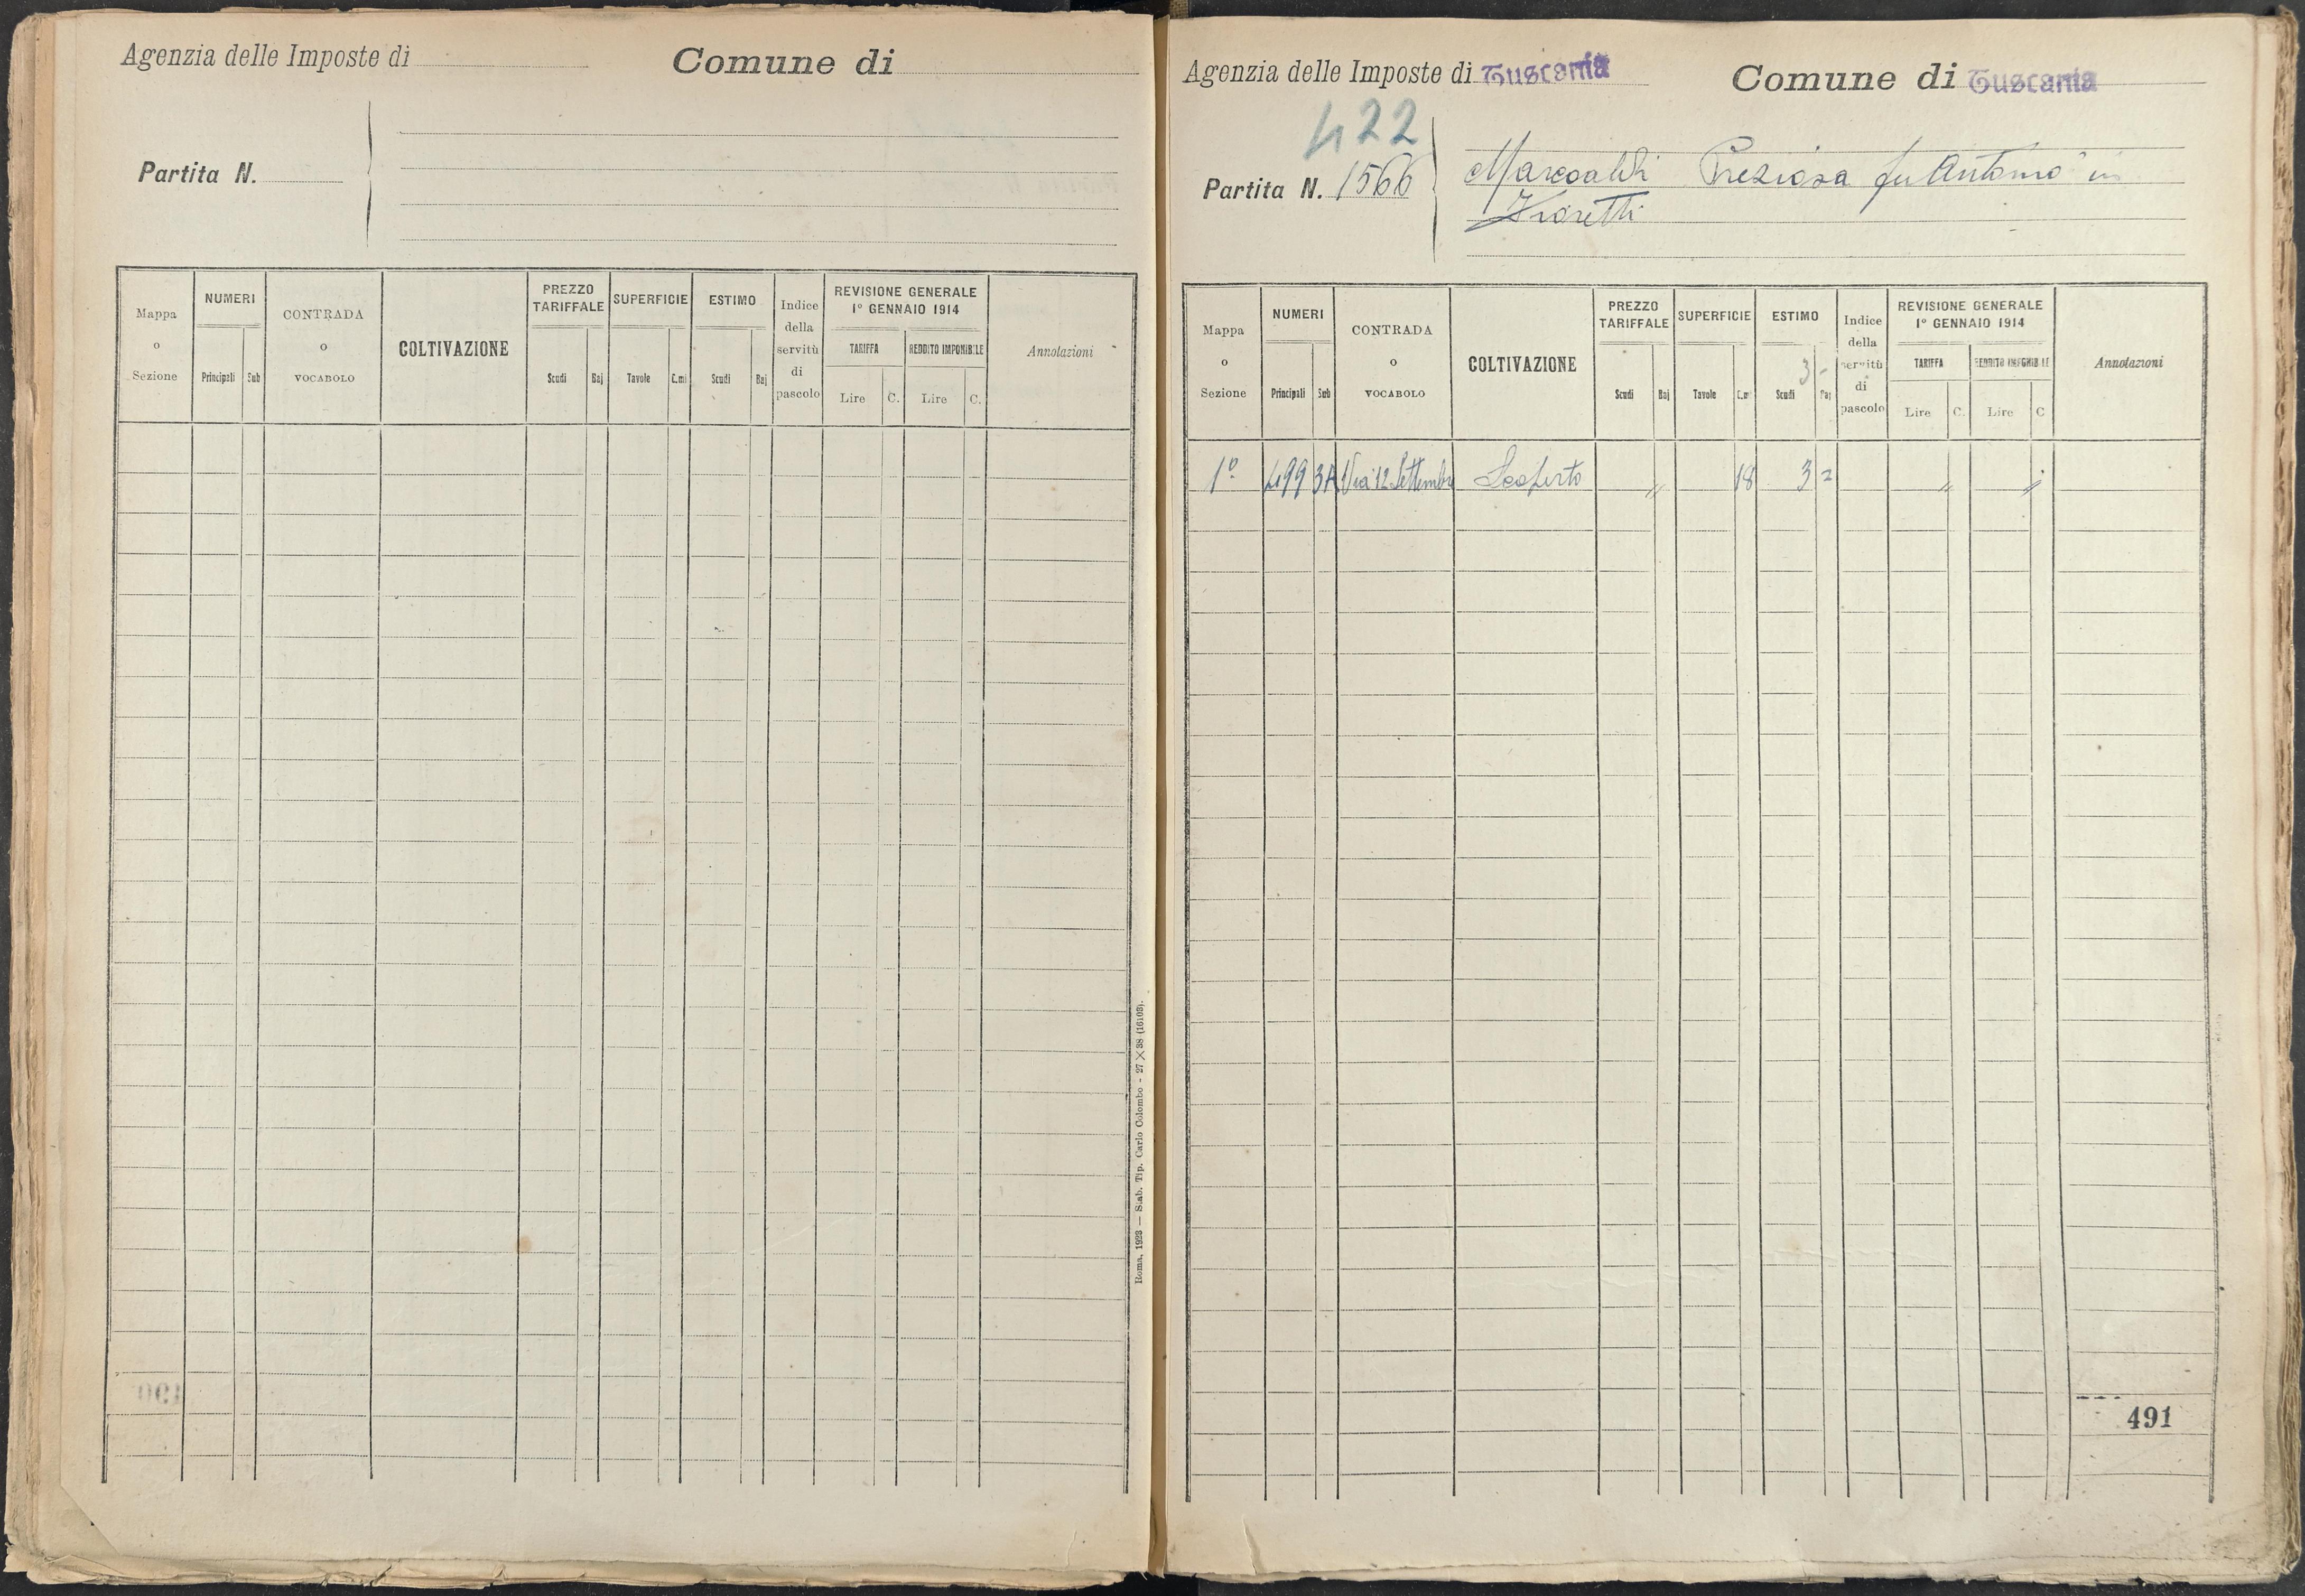 Agenzia delle Imposte di
Comune di
Partita N.
Mappa o Sezione
NUMERI
Principali
Sub
CONTRADA o VOCABOLO
COLTIVAZIONE
PREZZO TARIFFALE
Scudi
Baj
SUPERFICIE
Tavole
C.mi
ESTIMO
Scudi
Baj
Indice della servitù di pascolo
REVISIONE GENERALE
1° GENNAIO 1914
TARIFFA
Lire
C.
REDDITO IMPONIBILE
Lire
C.
Annotazioni
Roma, 1923 — Stab. Tip. Carlo Colombo - 27 × 38 (16103).
Agenzia delle Imposte di Tuscania
Comune di Tuscania
422
Partita N. 1566
Marcoaldi Preziosa fu Antonio in
Fioretti
Mappa o Sezione
NUMERI
Principali
Sub
CONTRADA o VOCABOLO
COLTIVAZIONE
PREZZO TARIFFALE
Scudi
Baj
SUPERFICIE
Tavole
C.mi
ESTIMO
3 -
Scudi
Baj
Indice della servitù di pascolo
REVISIONE GENERALE
1° GENNAIO 1914
TARIFFA
Lire
C.
REDDITO IMPONIBILE
Lire
C
Annotazioni
1° 499 3A Via 12 Settembre Scoperto " 18 3 = " "
491